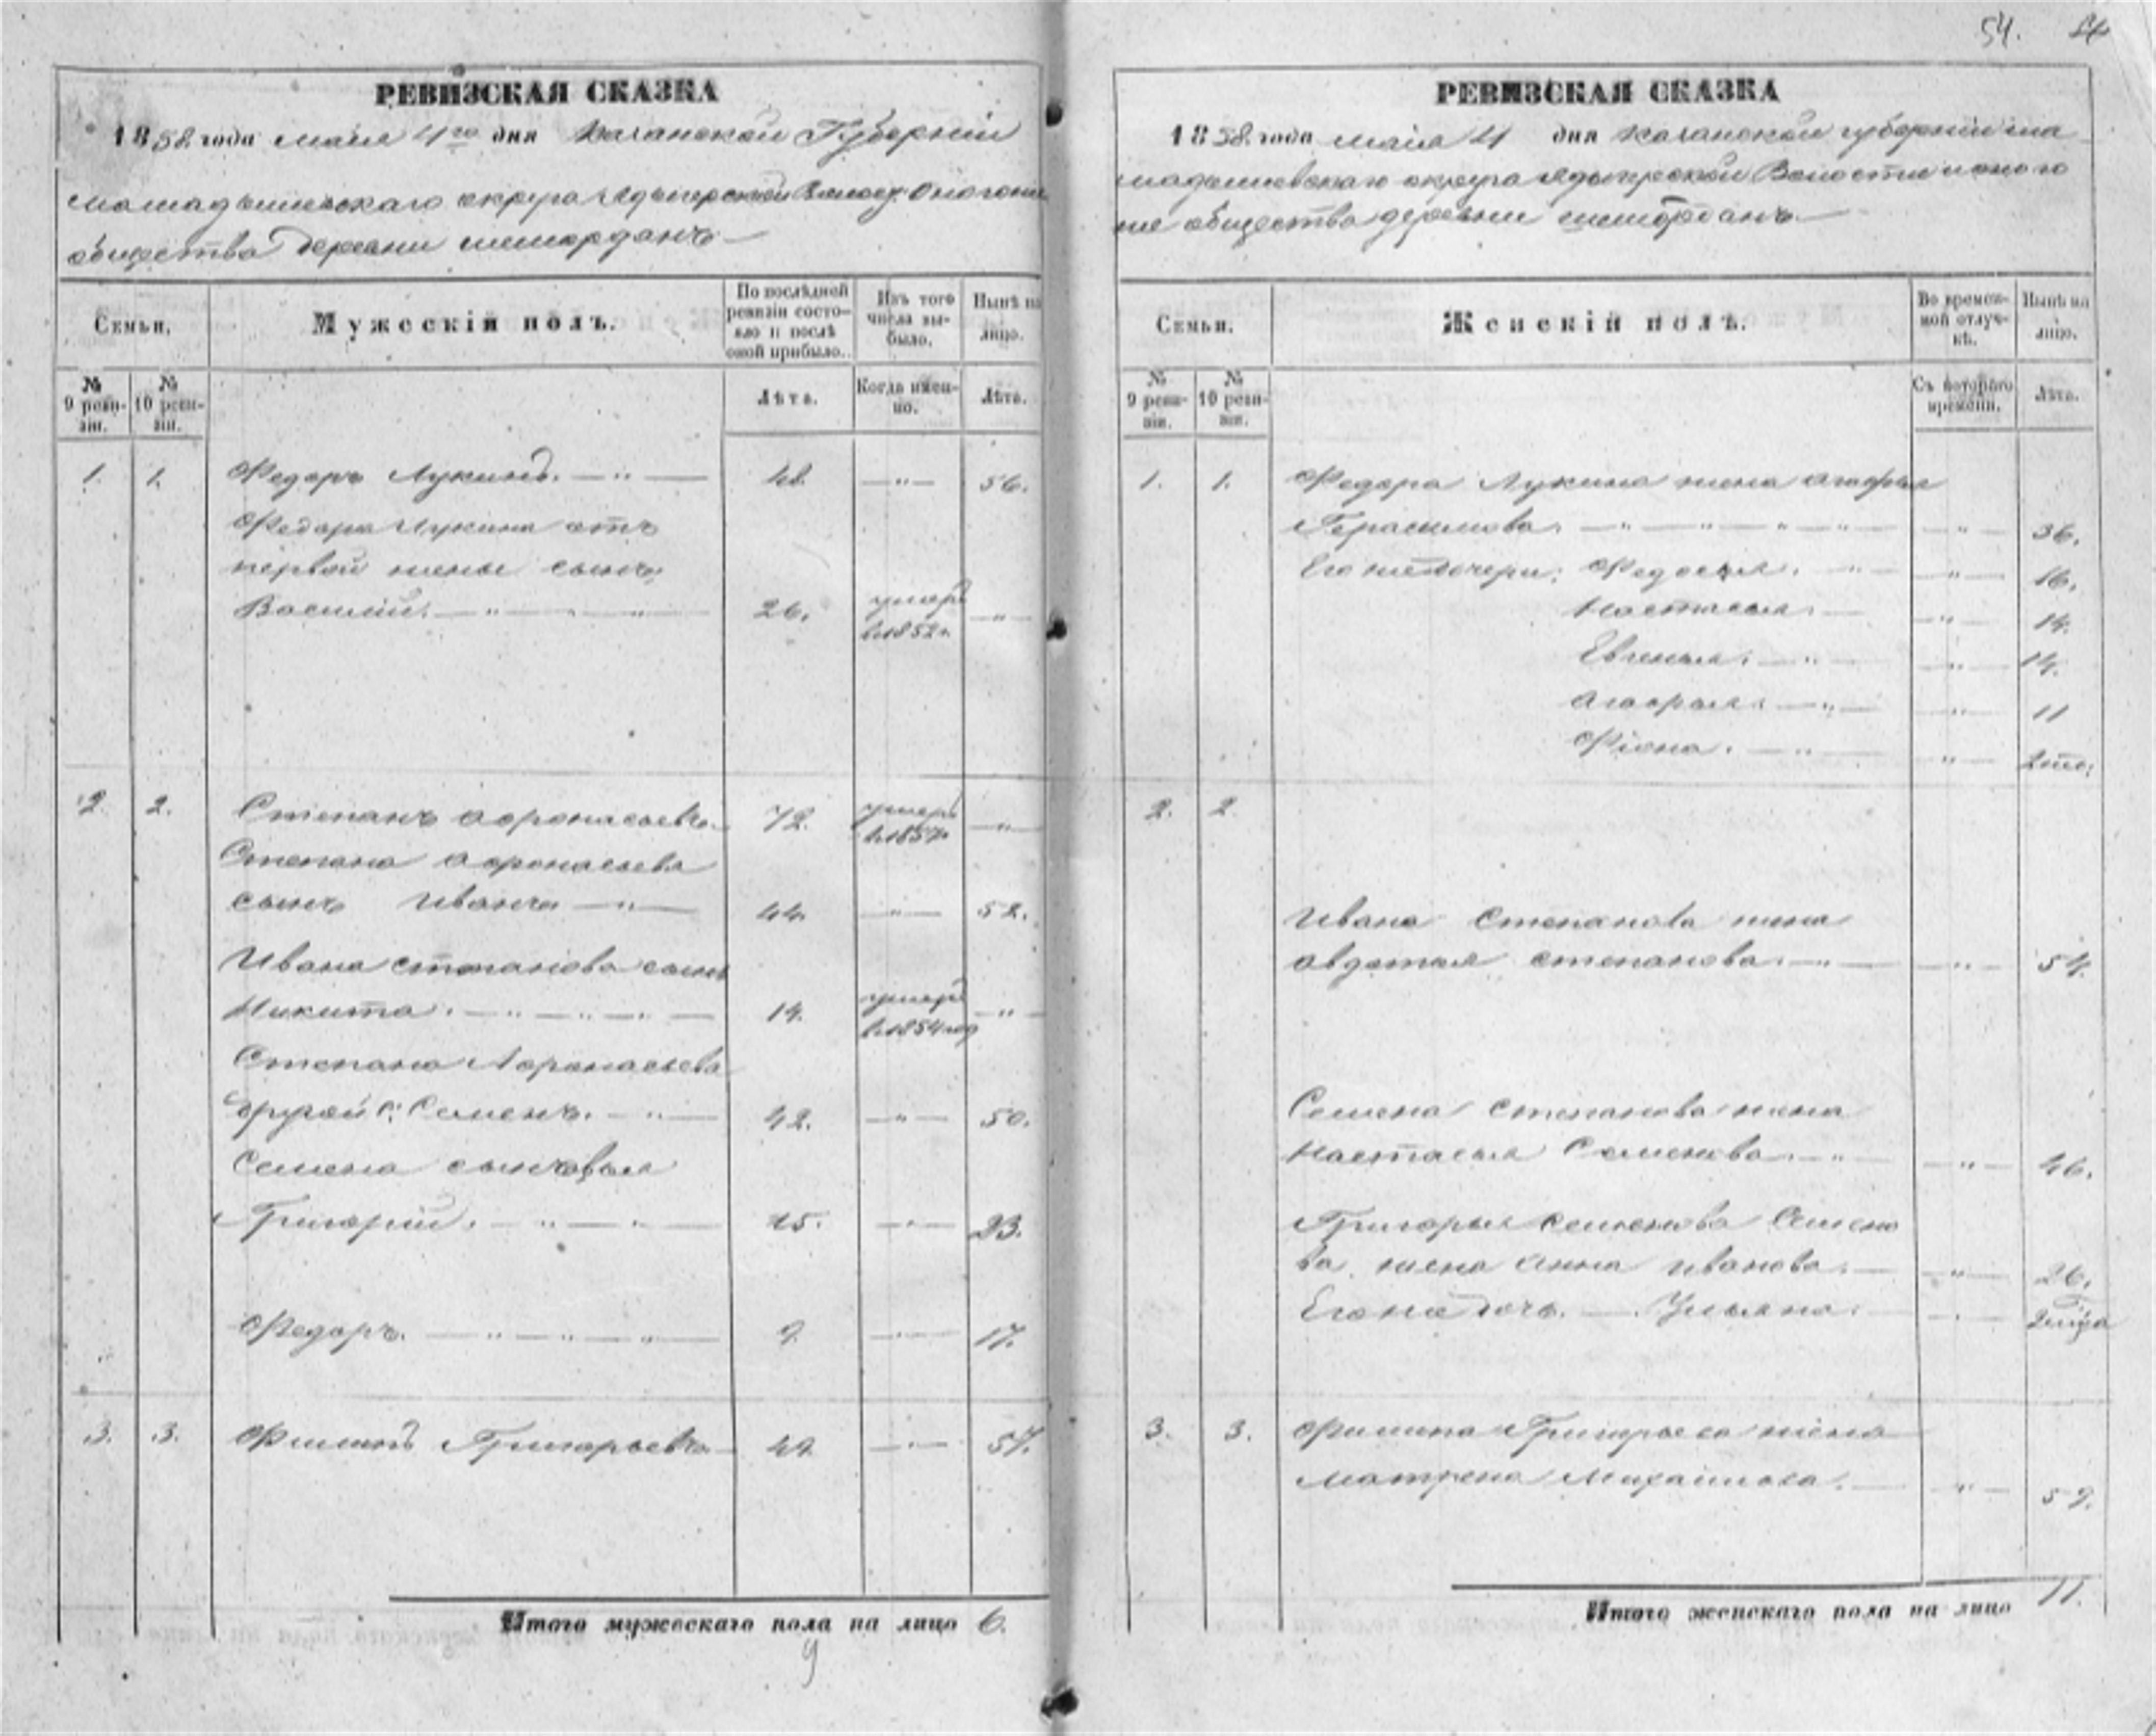 54.
РЕВИЗСКАЯ СКАЗКА
1858 года маия 4го дня Казанской Губернии
мамадышевскаго округа Ядыгерской Волост.
общества деревни шемордань
Семьи.
Мужескій полъ.
По послѣдней ревизіи состояло и послѣ оной прибыло.
Изъ того числа выбыло.
Нынѣ на лицо.
№ 9 ревизіи.
№ 10 ревизіи.
Лѣта.
Когда именно.
Лѣта.
1. 1. Федоръ Лукинъ. 48. 56.
Федора Лукина отъ
первой жены сынъ,
Василій. 26. умеръ в.1852г.
2. 2. Степанъ Афонасьевъ. 72. умеръ в.1857г.
Степана Афонасьева
сынъ Иванъ 44. 52.
Ивана степанова сынъ
Никита. 14. умеръ в.1854год
Степана Афонасьева
другой с: Семенъ. 42. 50.
Семена сыновья
Григорій. 15. 23.
Федоръ. 9. 17.
3. 3. Филипъ Григорьевъ. 49. 57.
Итого мужескаго пола на лицо 6.
9
РЕВИЗСКАЯ СКАЗКА
1858 года маия 4 дня Казанской губернии ма
мадышевскаго округа Ядыгерской Волости
общества деревни шемордань
Семьи.
Женскій полъ.
Во временной отлучкѣ.
Нынѣ на лицо.
№ 9 ревизіи.
№ 10 ревизіи.
Съ котораго времени.
Лѣта.
1. 1. Федора Лукина жена агафья
Герасимова. 36.
Его же дочери: Федосья. 16.
Настасья. 14.
Евгенья. 14.
Агафья. 11
Фіона.
2. 2.
Ивана Степанова жена
авдотья степанова. 54.
Семена степанова жена
Настасья Семенова. 46.
Григорья семенова Семено
ва жена анна иванова. 26.
Его же дочь. Ульяна.
3. 3. Филипа Григорьева жена
Матрена Михаилова. 59.
Итого женскаго пола на лицо 11.